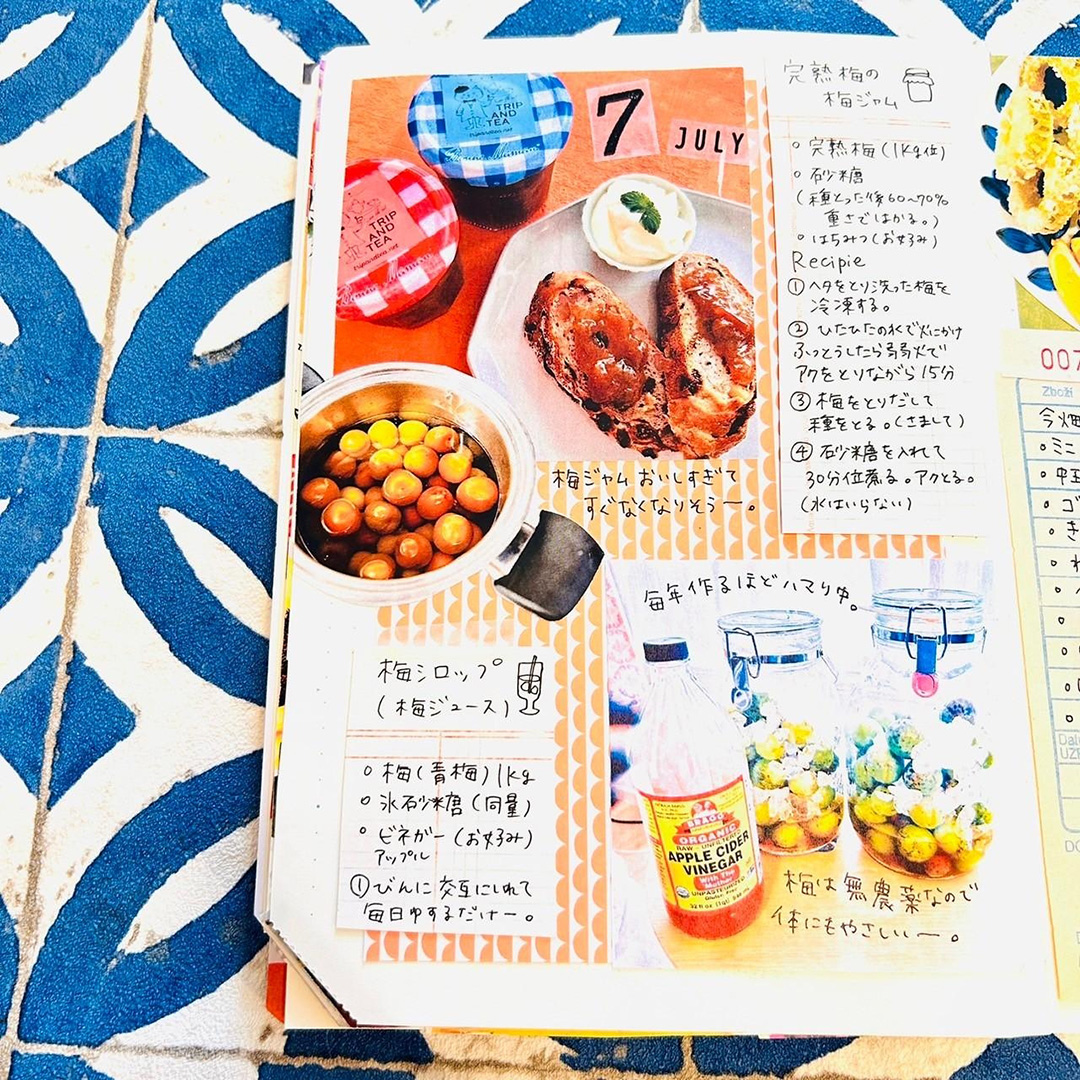 TRIP
AND
TEA
tripandtea.net
Bonne Maman
TRIP
AND
TEA
tripandtea.net
Bonne Maman
7
JULY
完熟梅の
梅ジャム
○ 完熟梅 (1kg位)
○ 砂糖
(種とった後60~70%
重さではかる。)
○ はちみつ (お好み)
Recipie
① ヘタをとり洗った梅を
冷凍する。
② ひたひたの水で火にかけ
ふっとうしたら弱火で
アクをとりながら15分
③ 梅をとりだして
種をとる。(さまして)
④ 砂糖を入れて
30分位煮る。アクとる。
(水はいらない)
梅ジャムおいしすぎて
すぐなくなりそうー。
毎年作るほどハマり中。
梅シロップ
(梅ジュース)
○ 梅(青梅) 1kg
○ 氷砂糖 (同量)
○ ビネガー (お好み)
アップル
① びんに交互にいれて
毎日ゆするだけー。
BRAGG
ORGANIC
RAW - UNFILTERED
APPLE CIDER
VINEGAR
With The
"Mother"
UNPASTEURIZED
梅は無農薬なので
体にもやさしいー。
007
Zboží
今畑
○ミニ
○中玉
○ゴ